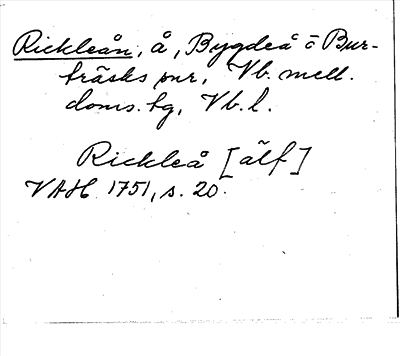 Rickleån, å, Bygdeå o Bur-
träsks snr, Vb. mell.
doms. fg, Vb. l.
Rickleå [älf]
VAH 1751, s. 20.